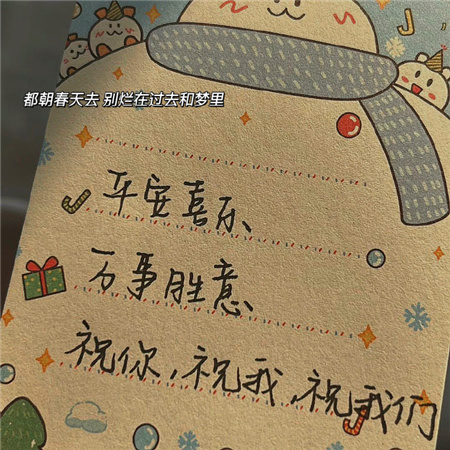 都朝春天去 别烂在过去和梦里
平安喜乐、
万事胜意、
祝你,祝我,祝我们